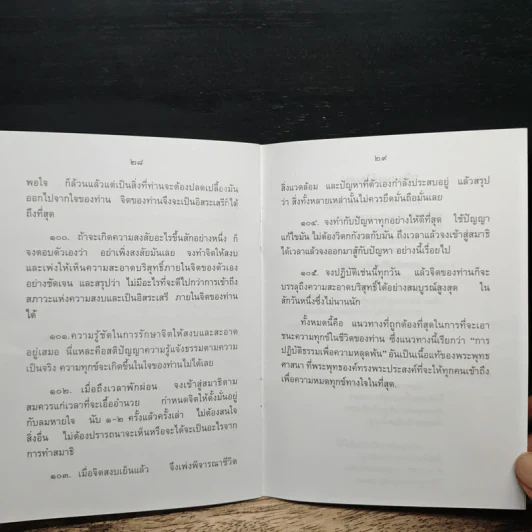 ๒๘
พอใจ ก็ล้วนแล้วแต่เป็นสิ่งที่ท่านจะต้องปลดเปลื้องมัน
ออกไปจากใจของท่าน จิตของท่านจึงจะเป็นอิสระเสรีได้
ถึงที่สุด
๑๐๐. ถ้าจะเกิดความสงสัยอะไรขึ้นสักอย่างหนึ่ง ก็
จงตอบตัวเองว่า อย่าเพิ่งสงสัยมันเลย จงทำจิตให้สงบ
และเพ่งให้เห็นความสะอาดบริสุทธิ์ภายในจิตของตัวเอง
อย่างชัดเจน และสรุปว่า ไม่มีอะไรที่จะดีไปกว่าการเข้าถึง
สภาวะแห่งความสงบและเป็นอิสระเสรี ภายในจิตของท่าน
ได้
๑๐๑. ความรู้ชัดในการรักษาจิตให้สงบและสะอาด
อยู่เสมอ นี่แหละคือสติปัญญาความรู้แจ้งธรรมตามความ
เป็นจริง ความทุกข์จะเกิดขึ้นในใจของท่านไม่ได้เลย
๑๐๒. เมื่อถึงเวลาพักผ่อน จงเข้าสู่สมาธิตาม
สมควรแก่เวลาที่จะเอื้ออำนวย กำหนดจิตให้ตั้งมั่นอยู่
กับลมหายใจ นับ ๑-๒ ครั้งแล้วครั้งเล่า ไม่ต้องสนใจ
สิ่งอื่น ไม่ต้องปรารถนาจะเห็นหรือจะได้จะเป็นอะไรจาก
การทำสมาธิ
๑๐๓. เมื่อจิตสงบเย็นแล้ว จึงเพ่งพิจารณาชีวิต
๒๙
สิ่งแวดล้อม และปัญหาที่ตัวเองกำลังประสบอยู่ แล้วสรุป
ว่า สิ่งทั้งหลายเหล่านั้นไม่ควรยึดมั่นถือมั่นเลย
๑๐๔. จงทำกับปัญหาทุกอย่างให้ดีที่สุด ใช้ปัญญา
แก้ไขมัน ไม่ต้องวิตกกังวลกับมัน ถึงเวลาแล้วจงเข้าสู่สมาธิ
ได้เวลาแล้วจงออกมาสู้กับปัญหา อย่างนี้เรื่อยไป
๑๐๕. จงปฏิบัติเช่นนี้ทุกวัน แล้วจิตของท่านก็จะ
บรรลุถึงความสะอาดบริสุทธิ์ได้อย่างสมบูรณ์สูงสุด ใน
สักวันหนึ่งซึ่งไม่นานนัก
ทั้งหมดนี้คือ แนวทางที่ถูกต้องที่สุดในการที่จะเอา
ชนะความทุกข์ในชีวิตของท่าน ซึ่งแนวทางนี้เรียกว่า "การ
ปฏิบัติธรรมเพื่อความหลุดพ้น" อันเป็นเนื้อแท้ของพระพุทธ
ศาสนา ที่พระพุทธองค์ทรงพระประสงค์ที่จะให้ทุกคนเข้าถึง
เพื่อความหมดทุกข์ทางใจในที่สุด.